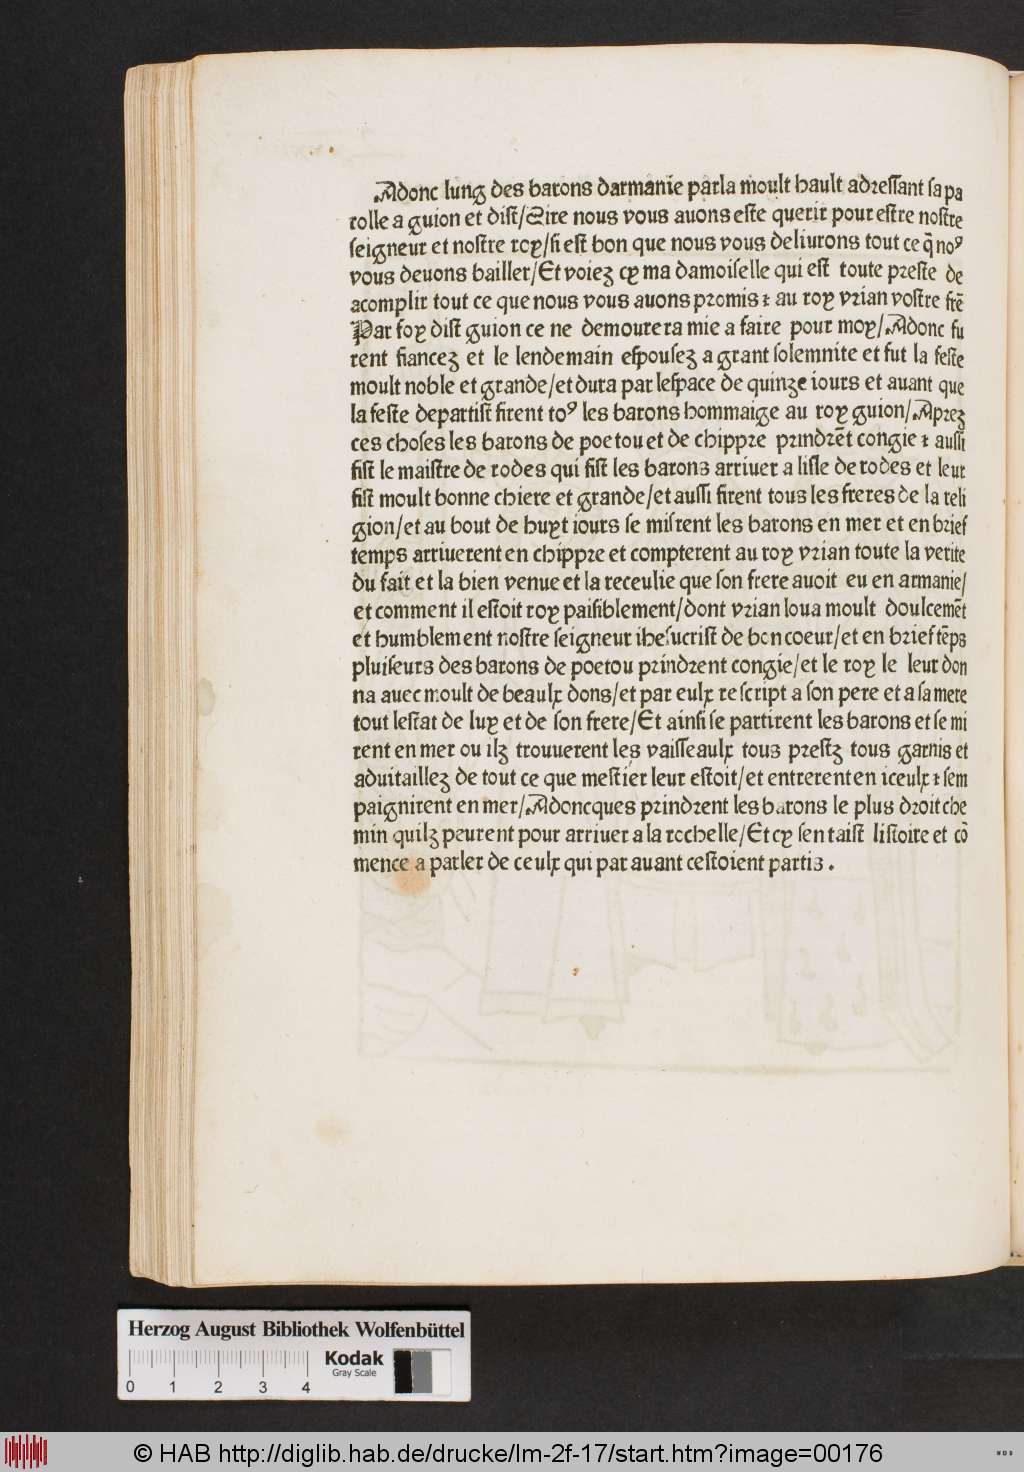 Adonc lung des barons darmanie parla moult hault adressant sa pa
rolle a guion et dist/Sire nous vous auons este querir pour estre nostre
seigneur et nostre roy/si est bon que nous vous deliurons tout ce q̄ noꝰ
vous deuons bailler/Et voiez cy ma damoiselle qui est toute preste de
acomplir tout ce que nous vous auons promis ⁊ au roy vrian vostre frē
Par foy dist guion ce ne demourera mie a faire pour moy/Adonc fu
rent fiancez et le lendemain espousez a grant solemnite et fut la feste
moult noble et grande/et dura par lespace de quinze iours et auant que
la feste departist firent toꝰ les barons hommaige au roy guion/Aprez
ces choses les barons de poetou et de chippre prindrēt congie ⁊ aussi
fist le maistre de rodes qui fist les barons arriuer a lisle de rodes et leur
fist moult bonne chiere et grande/et aussi firent tous les freres de la reli
gion/et au bout de huyt iours se misrent les barons en mer et en brief
temps arriuerent en chippre et compterent au roy vrian toute la verite
du fait et la bien venue et la receulie que son frere auoit eu en armanie/
et comment il estoit roy paisiblement/dont vrian loua moult doulcemēt
et humblement nostre seigneur ihesucrist de bon coeur/et en brief tēps
pluiseurs des barons de poetou prindrent congie/et le roy le leur don
na auec moult de beaulx dons/et par eulx rescript a son pere et a sa mere
tout lestat de luy et de son frere/Et ainsi se partirent les barons et se mi
rent en mer ou ilz trouuerent les vaisseaulx tous prestz tous garnis et
aduitaillez de tout ce que mestier leur estoit/et entrerent en iceulx ⁊ sem
paignirent en mer/Adoncques prindrent les barons le plus droit che
min quilz peurent pour arriuer a la rochelle/Et cy sen taist listoire et cō
mence a parler de ceulx qui par auant cestoient partis.
Herzog August Bibliothek Wolfenbüttel
Kodak
Gray Scale
0 1 2 3 4
© HAB http://diglib.hab.de/drucke/lm-2f-17/start.htm?image=00176